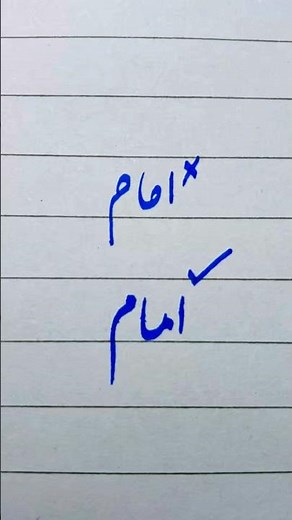 امام
امام